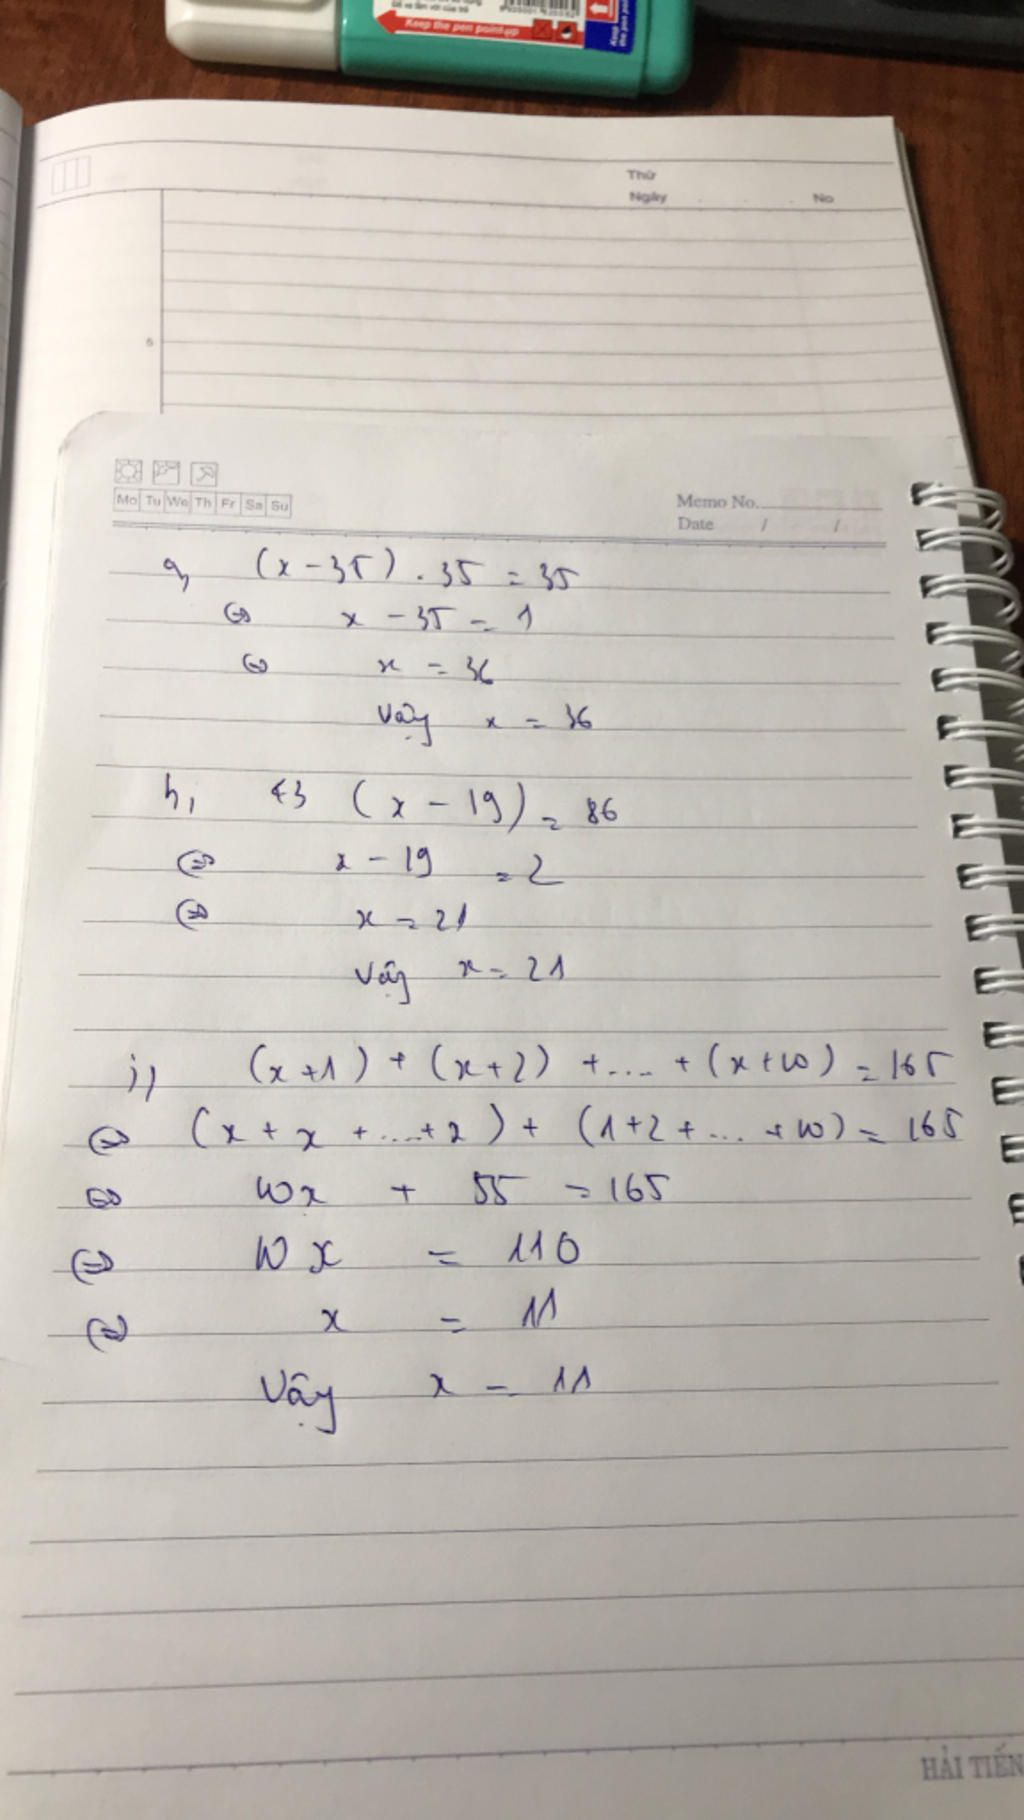 Keep the pen point up
Thứ
Ngày
No
5
Mo Tu We Th Fr Sa Su
Memo No.
Date / /
g, (x - 35) . 35 = 35
⇔ x - 35 = 1
⇔ x = 36
Vậy x = 36
h, 43 (x - 19) = 86
⇔ x - 19 = 2
⇔ x = 21
Vậy x = 21
i) (x+1) + (x+2) + .... + (x+10) = 165
⇔ (x + x + ....+ x) + (1+2 + ... + 10) = 165
⇔ 10x + 55 = 165
⇔ 10x = 110
⇔ x = 11
Vậy x = 11
HẢI TIẾN